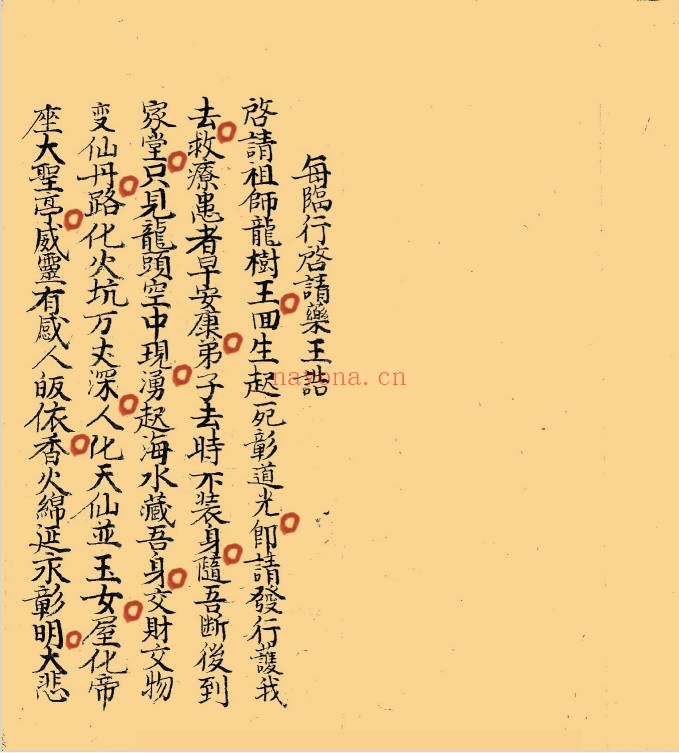 每臨行啓請藥王誥
啓請祖師龍樹王回生起死彰道光即請發行護我
去救療患者早安康弟子去時不装身隨吾斷後到
家堂只見龍頭空中現湧起海水藏吾身交財交物
变仙丹路化火坑万丈深人化天仙並玉女屋化帝
座大聖亭威靈有感人皈依香火綿延永彰明大悲
nayona.cn